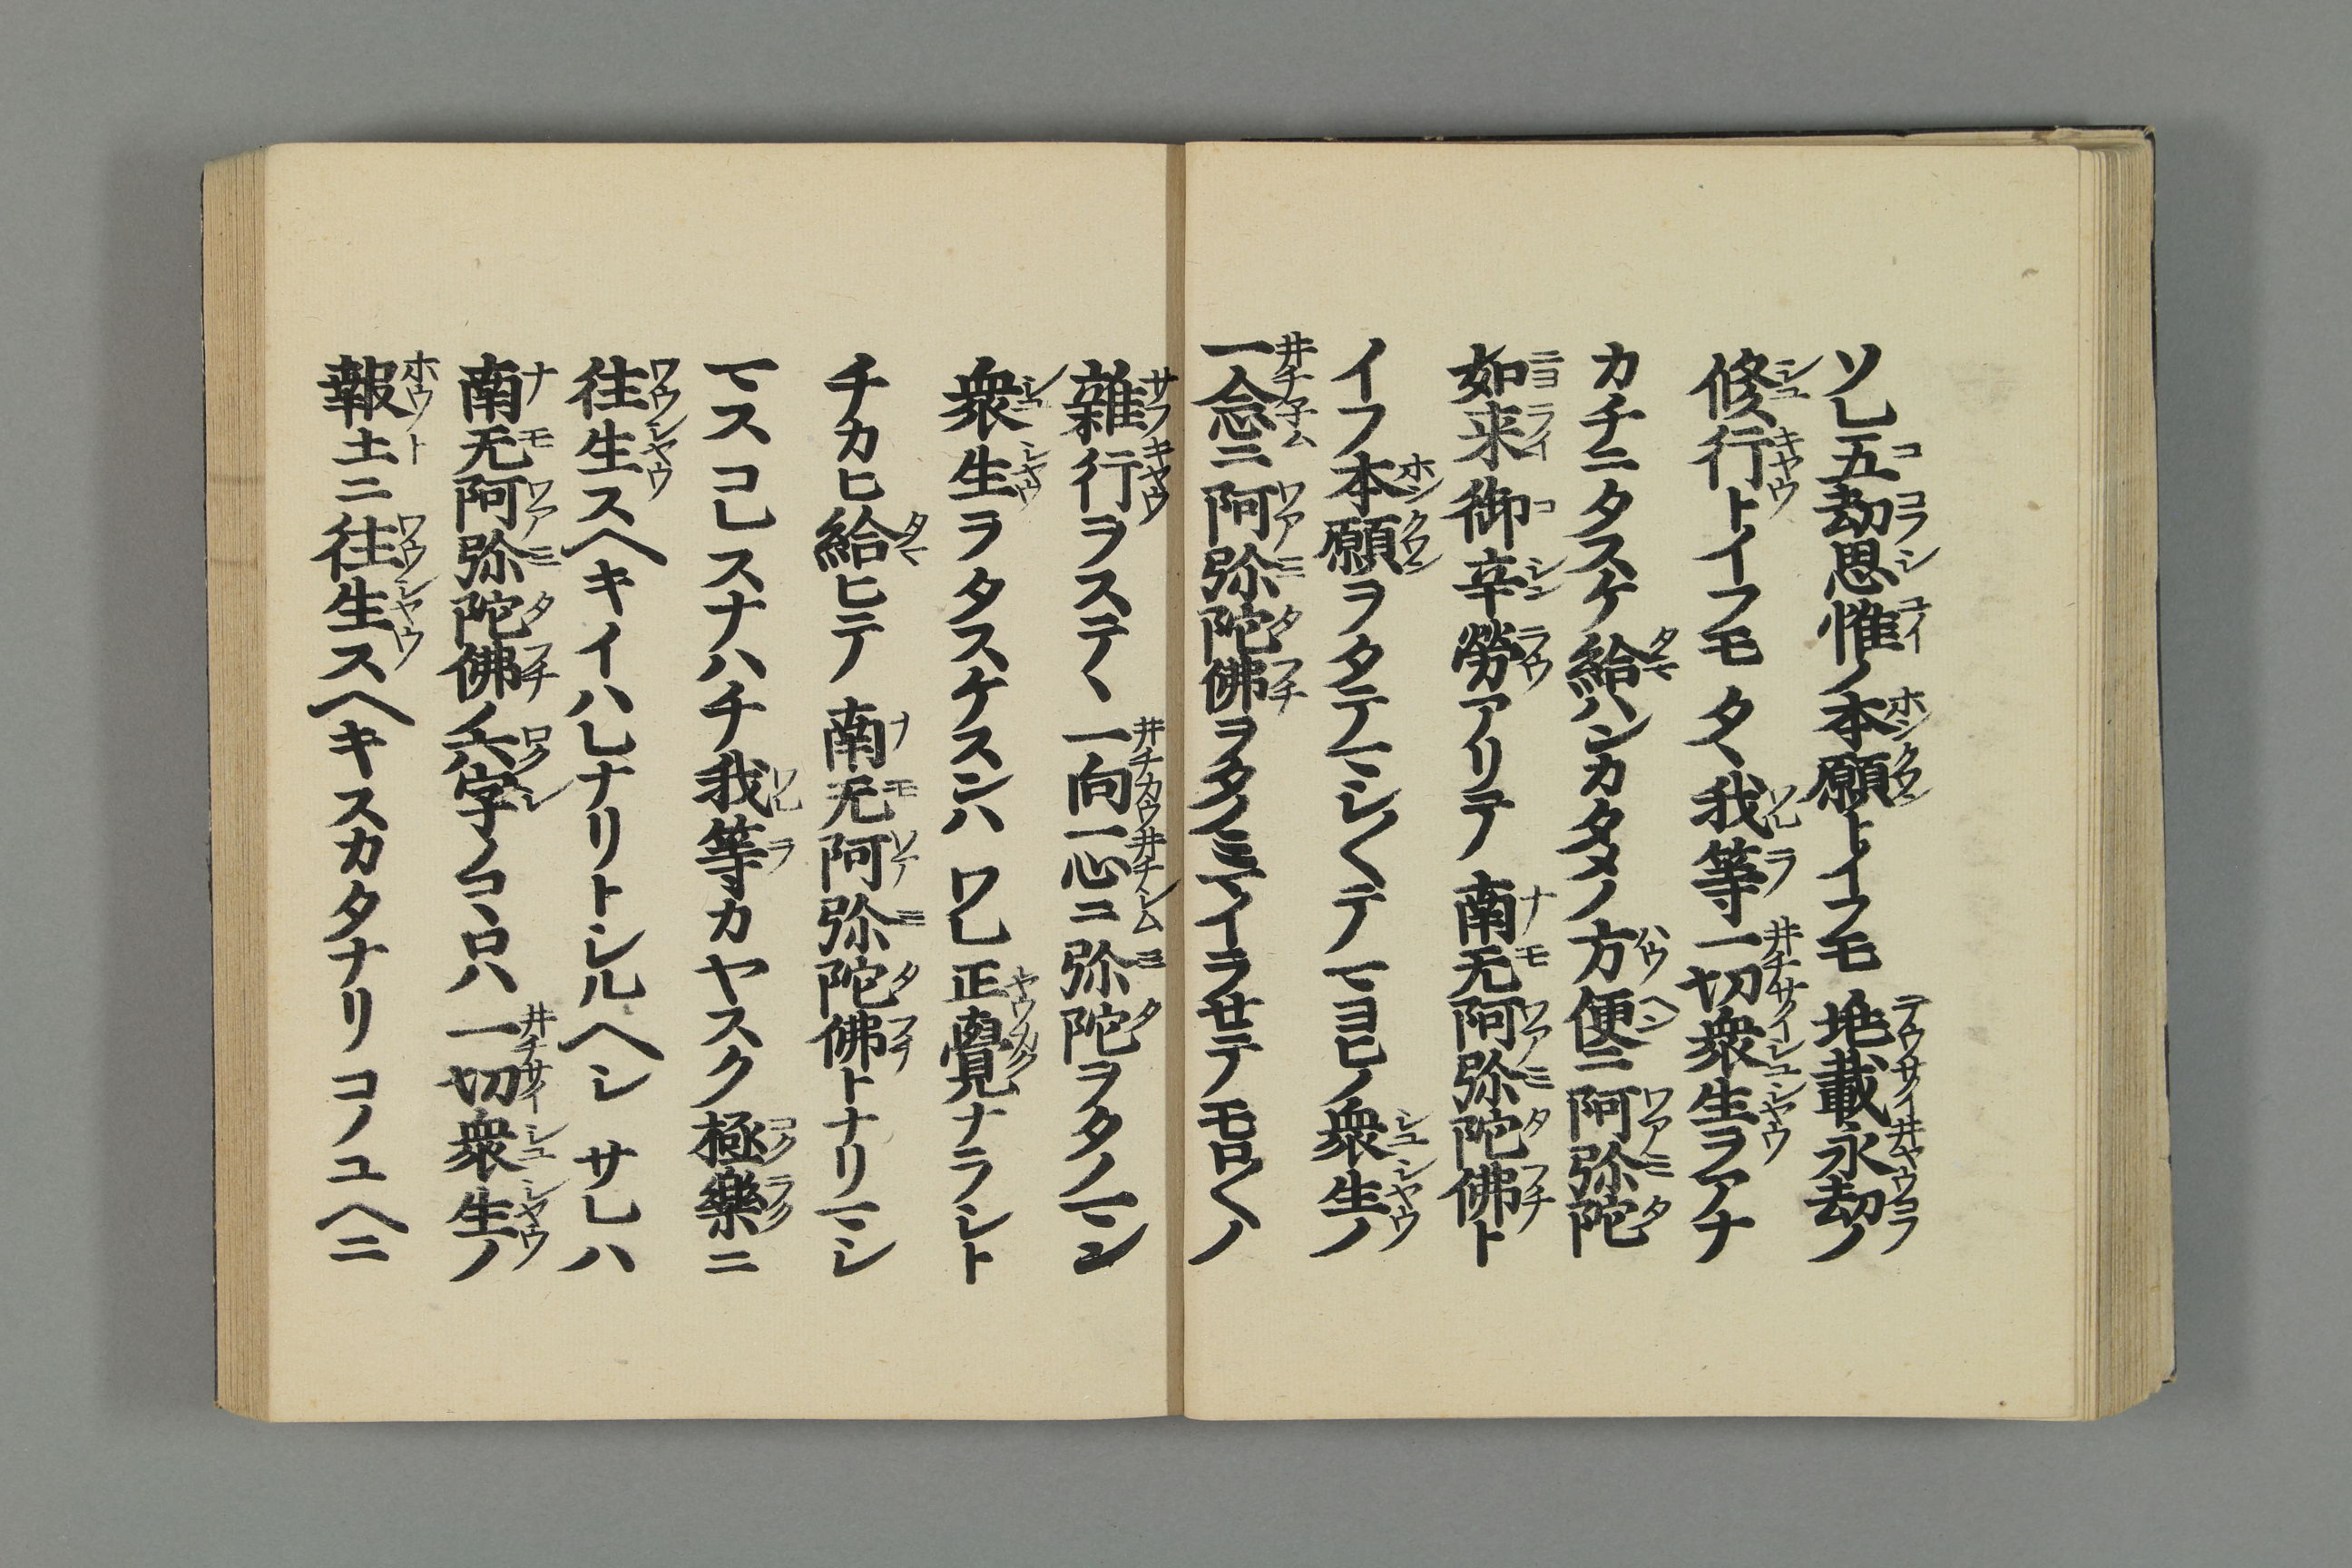 ソレ五劫思惟ノ本願トイフモ 兆載永劫ノ
修行トイフモ タヽ我等一切衆生ヲアナ
カチニタスケ給ハンカタメノ方便ニ阿弥陀
如来御辛労アリテ 南无阿弥陀佛ト
イフ本願ヲタテマシ〱テ マヨヒノ衆生ノ
一念ニ阿弥陀佛ヲタノミマイラセテ モロ〱ノ
雑行ヲステヽ 一向一心ニ弥陀ヲタノマン
衆生ヲタスケスンハ ワレ正覺ナラシト
チカヒ給ヒテ 南无阿弥陀佛トナリマシ
マス コレスナハチ我等カヤスク極樂ニ
往生スヘキイハレナリトシルヘシ サレハ
南无阿弥陀佛ノ六字ノコヽロハ 一切衆生ノ
報土ニ往生スヘキスカタナリ コノユヘニ